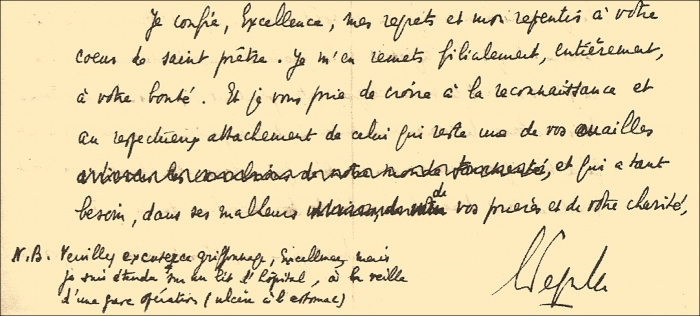 Je confie, Excellence, mes regrets et mon repentir à votre
coeur de saint prêtre. Je m'en remets filialement, entièrement,
à votre bonté. Et je vous prie de croire à la reconnaissance et
au respectueux attachement de celui qui reste une de vos ouailles
et qui a tant
besoin, dans ses malheurs de vos prières et de votre charité,
N.B. Veuillez excuser ce griffonnage, Excellence, mais
je suis étendu sur un lit d'hôpital, à la veille
d'une grave opération (ulcère à l'estomac)